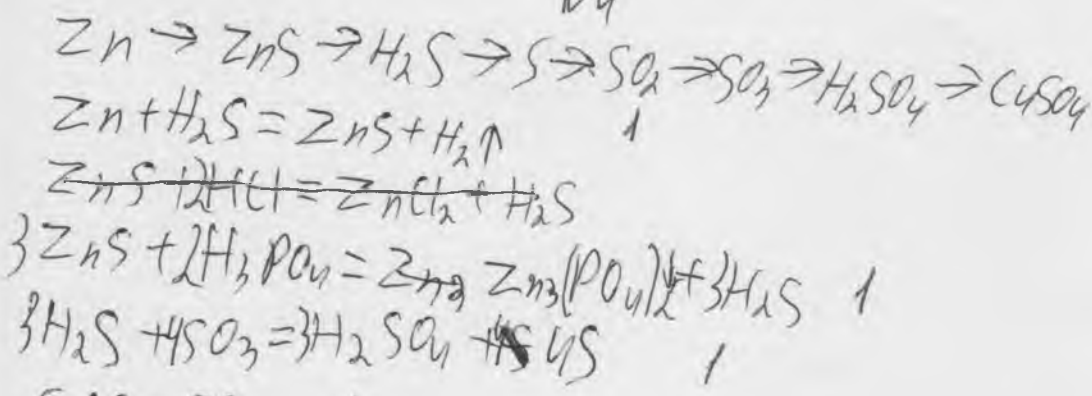 Zn → ZnS → H₂S → S → SO₂ → SO₃ → H₂SO₄ → CuSO₄
1
Zn + H₂S = ZnS + H₂↑
ZnS + 2HCl = ZnCl₂ + H₂S
3ZnS + 2H₃PO₄ = Zn₃ Zn₃(PO₄)₂↓ + 3H₂S 1
3H₂S + 4SO₃ = 3H₂SO₄ + 4S 4S 1